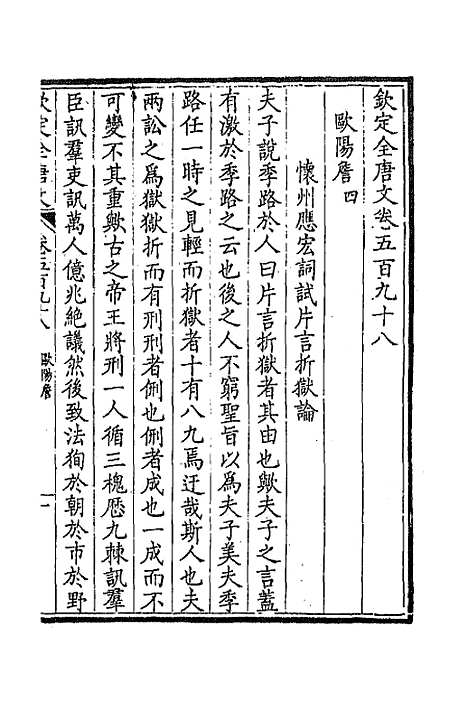 欽定全唐文卷五百九十八
歐陽詹四
懷州應宏詞試片言折獄論
夫子說季路於人曰片言折獄者其由也歟夫子之言蓋
有激於季路之云也後之人不窮聖旨以為夫子美夫季
路任一時之見輕而折獄者十有八九焉迂哉斯人也夫
兩訟之為獄獄折而有刑刑者侀也侀者成也一成而不
可變不其重歟古之帝王將刑一人循三槐歷九棘訊羣
臣訊羣吏訊萬人億兆絕議然後致法狥於朝於市於野
欽定全唐文
卷五百九十八
歐陽詹
一